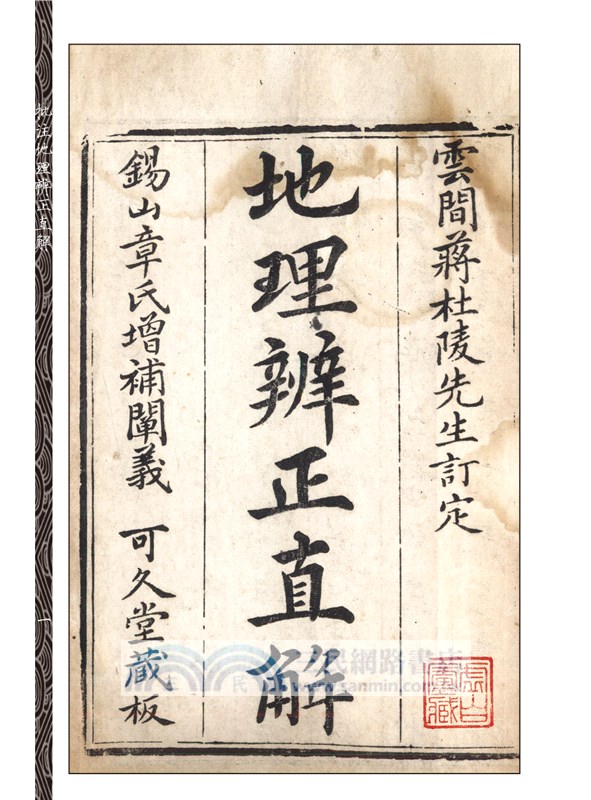 雲間蔣杜陵先生訂定
地理辨正直解
錫山章氏增補闡義 可久堂藏板
批注地理辨正直解
一
三民網路書店
www.sanmin.com.tw